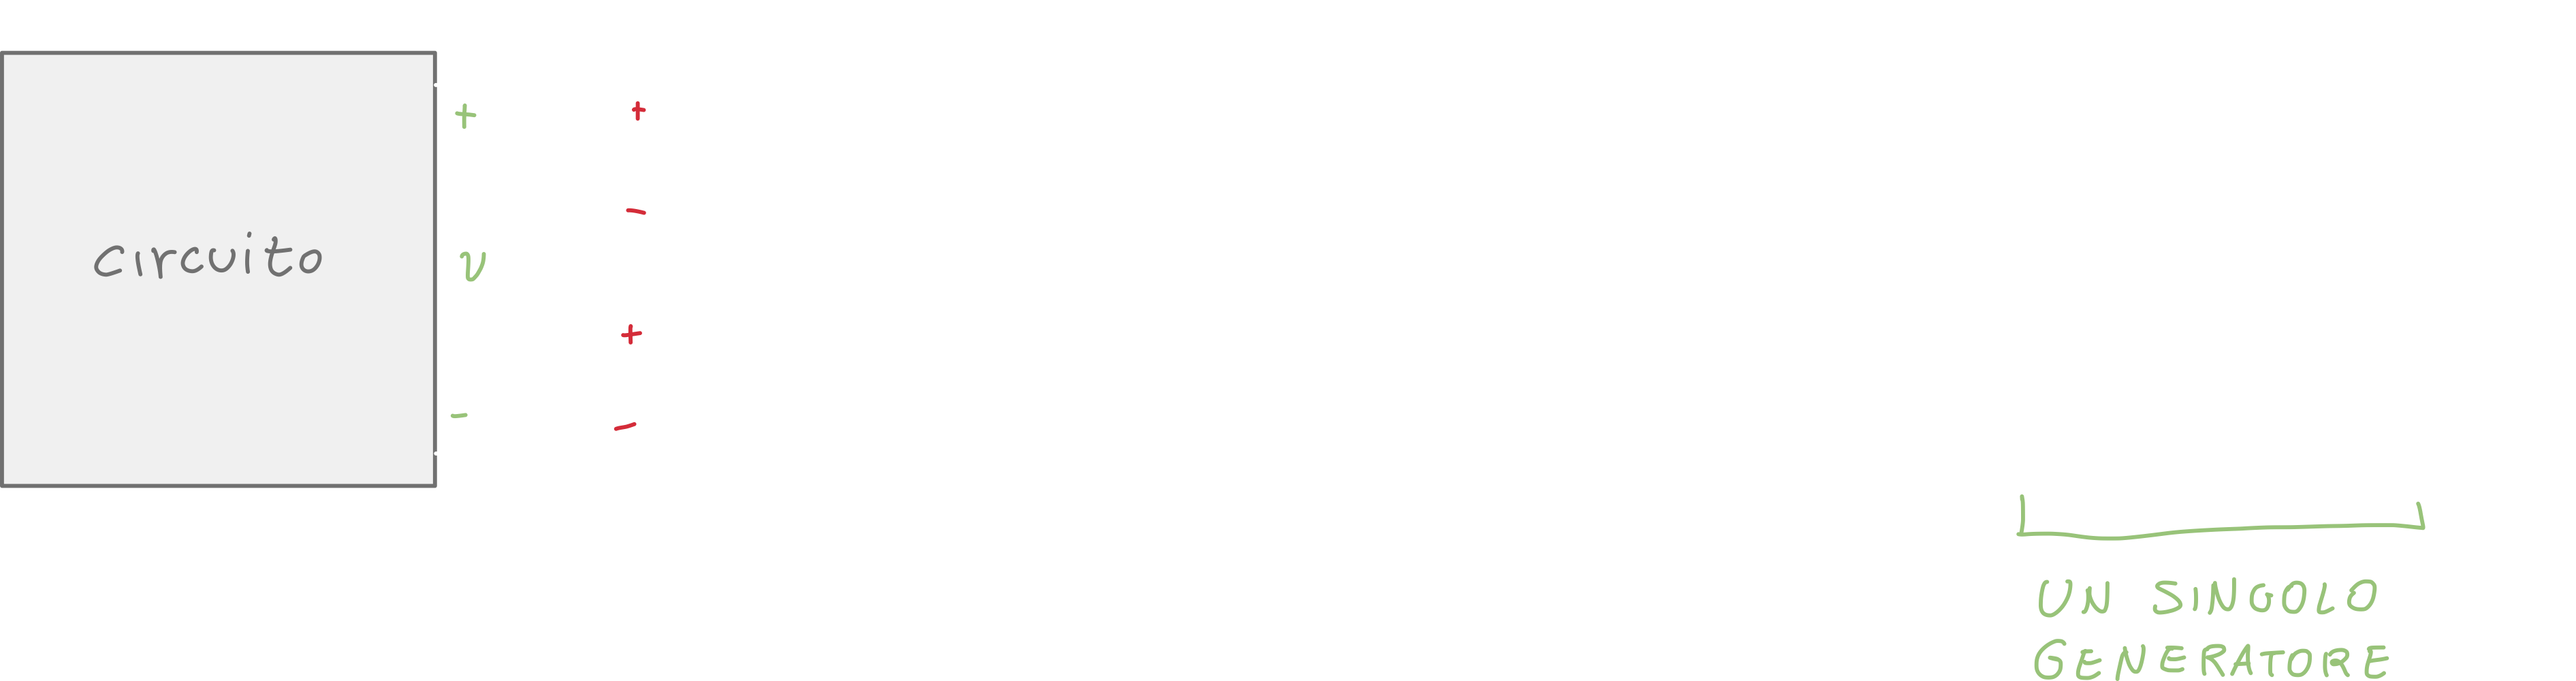 +
+
-
circuito
v
+
-
-
UN SINGOLO
GENERATORE